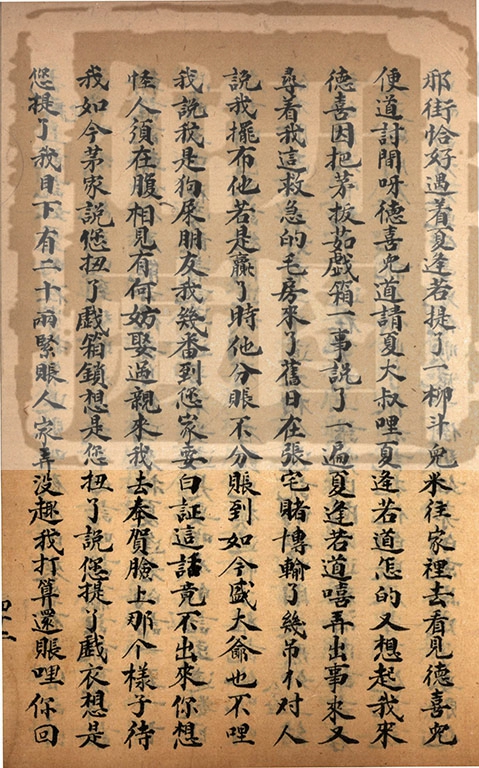 那街恰好遇着夏逢若提了一柳斗兒米往家裡去看見德喜兒
便道討閒呀德喜兒道請夏大叔哩夏逢若道怎的又想起我來
德喜因把茅拔茹戲箱一事說了一遍夏逢若道嘻弄出事來又
尋着我這救急的毛房來了舊日在張宅賭博輸了幾吊不對人
說我擺布他若是贏了時他分賬不分賬到如今盛大爺也不哩
我說我是狗屎朋友我幾番到您家要白証這話竟不出來你想
怪人須在腹相見有何妨娶過親來我去奉賀臉上那个樣子待
我如今茅家說您扭了戲箱鎖想是您扭了說您提了戲衣想是
您提了我目下有二十兩緊賬人家弄没趣我打算還賬哩你回
四十二